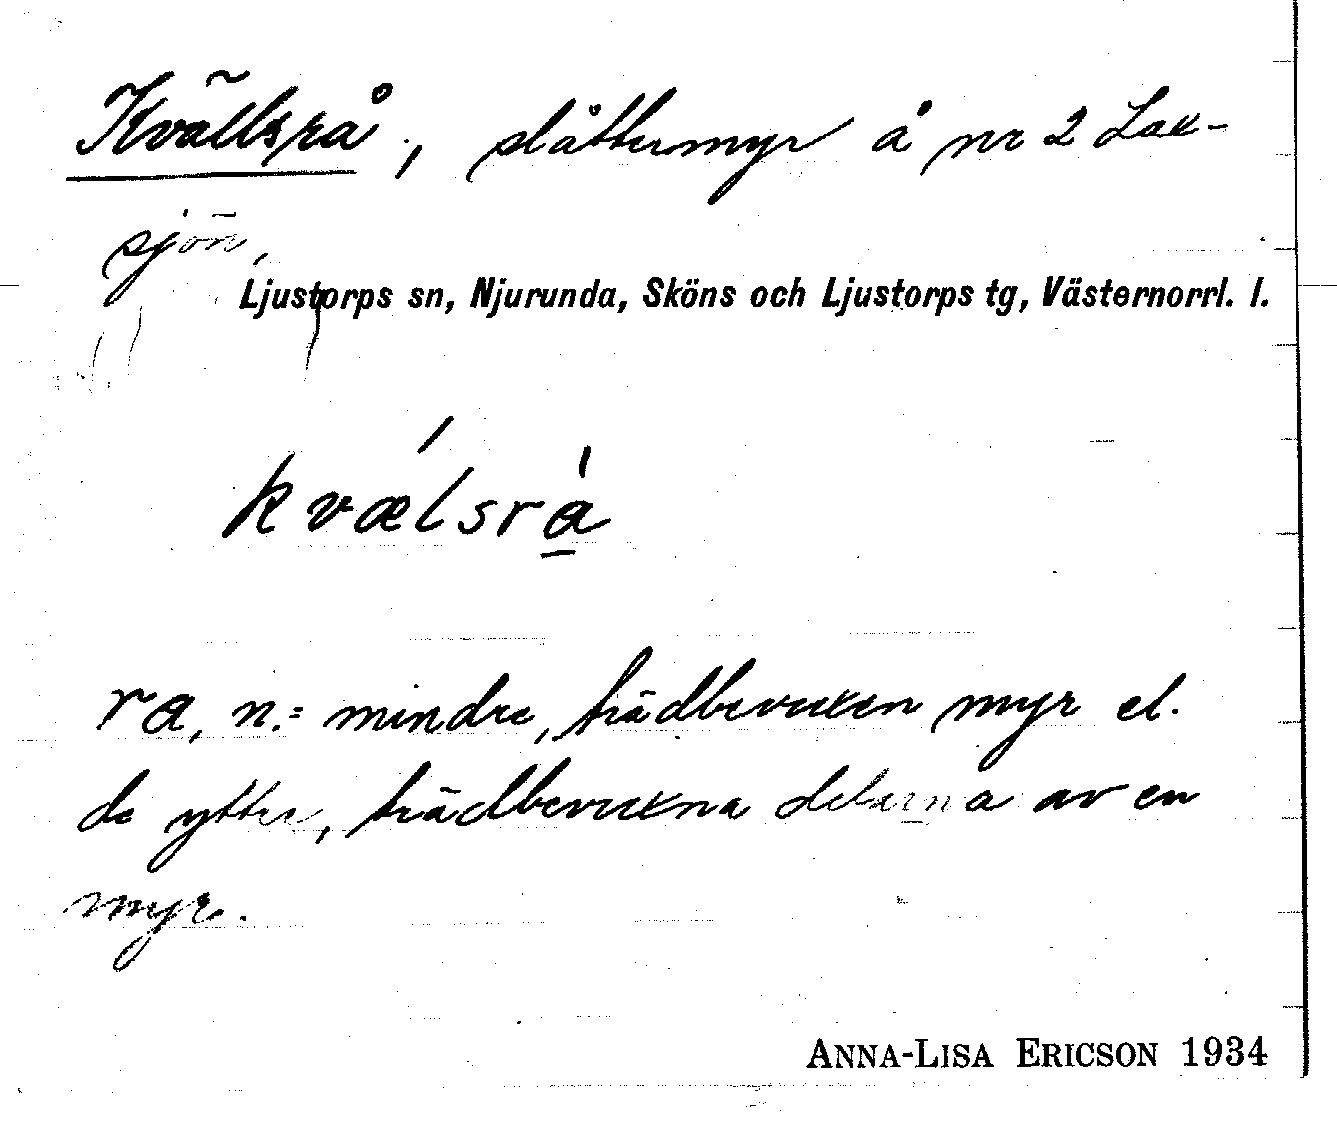 Kvällsrå, slåttermyr å nr 2 Lax-
sjön,
Ljustorps sn, Njurunda, Sköns och Ljustorps tg, Västernorrl. l.
kvælsra
ra, n.= mindre, trädbevuxen myr el.
de yttre, trädbevuxna delarna av en
myr.
ANNA-LISA ERICSON 1934